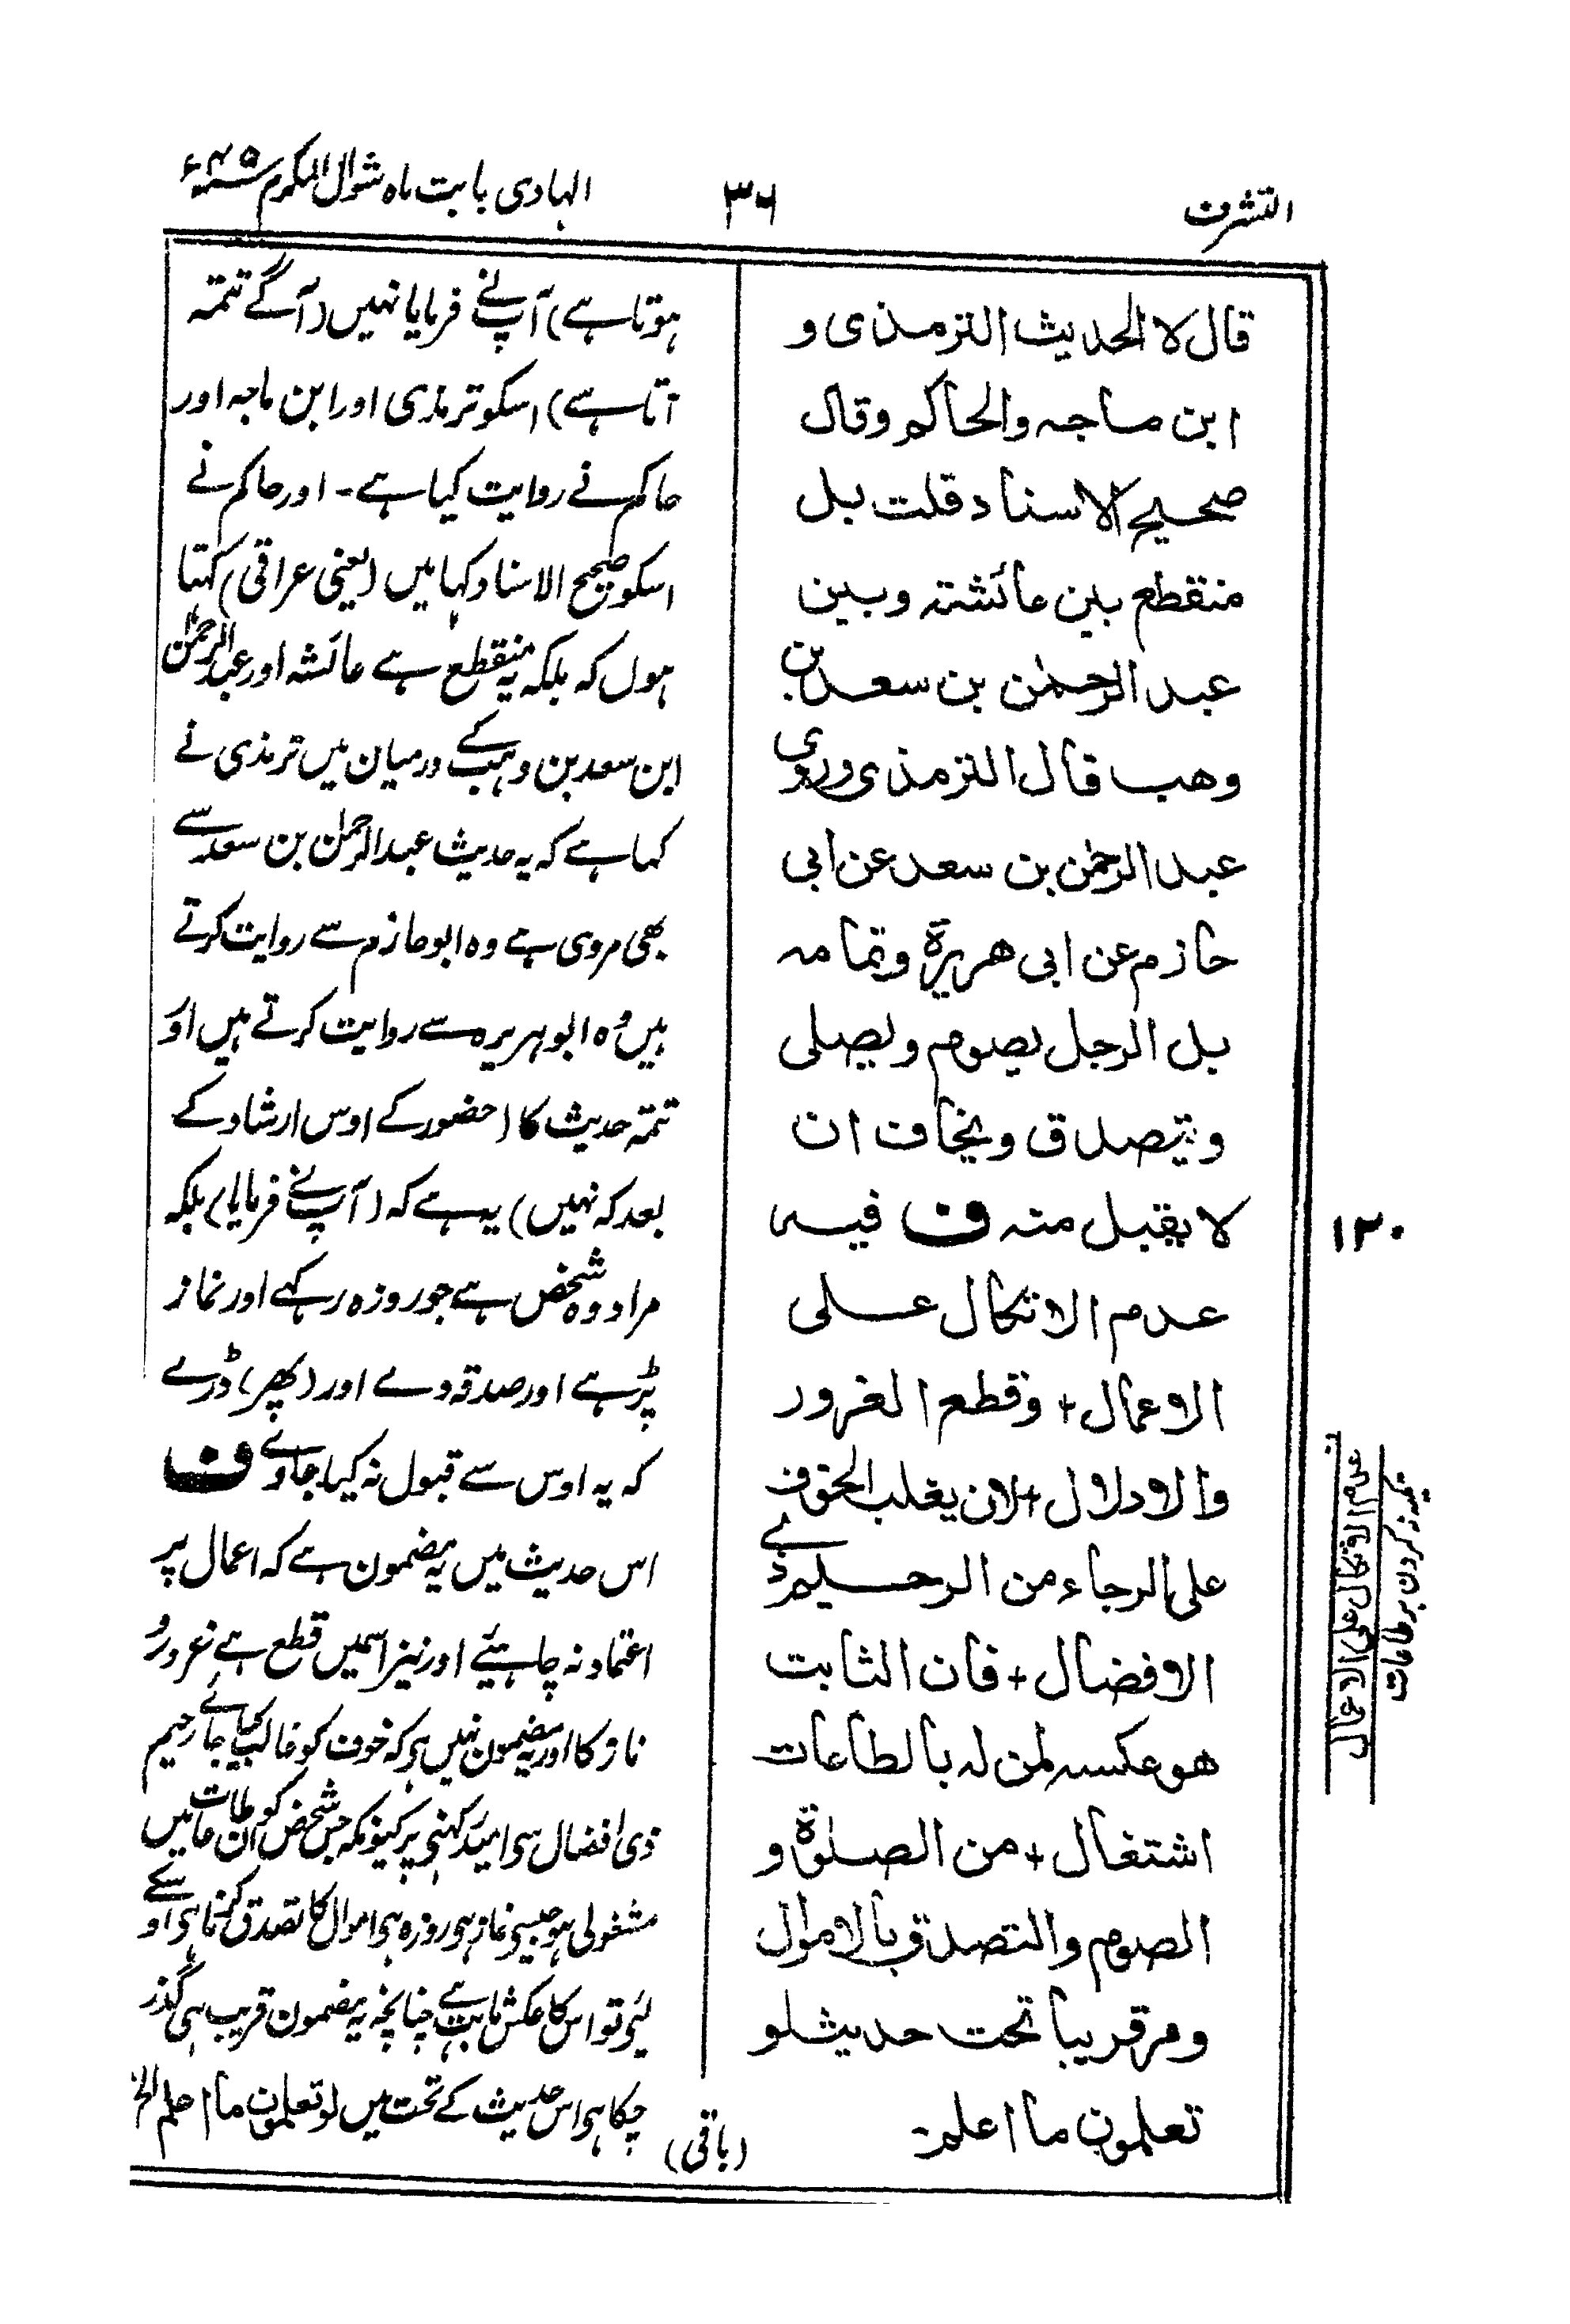 التشرف
٣٦
الہادی بابت ماہ شوال المکرم ۴۵ء
قال لا الحديث الترمذی و
ابن ماجہ والحاکم وقال
صحیح الاسناد قلت بل
منقطع بین عائشۃ وبین
عبد الرحمٰن بن سعد بن
وهب قال الترمذی وروی
عبد الرحمٰن بن سعد عن ابی
حازم عن ابی هریرة وتمامہ
بل الرجل یصوم ویصلی
ویتصدق ویخاف ان
لا یقبل منہ ف فیہ
عدم الاتکال علی
الاعمال + وقطع الغرور
والادلال + لان یغلب الخوف
علی الرجاء من الرحیم ذی
الافضال + فان الثابت
هو عکسہ لمن لہ بالطاعات
اشتغال + من الصلوٰة و
الصوم والتصدق بالاموال
ومر قریبا تحت حدیث لو
تعلمون ما اعلم-
ہوتا ہے) آپنے فرمایا نہیں (آگے تتمہ
آتا ہے) اسکو ترمذی اور ابن ماجہ اور
حاکم نے روایت کیا ہے- اور حاکم نے
اسکو صحیح الاسناد کہا میں (یعنی عراقی) کہتا
ہوں کہ بلکہ یہ منقطع ہے عائشہ اور عبد الرحمٰن
ابن سعد بن وہب کے درمیان میں ترمذی نے
کہا ہے کہ یہ حدیث عبد الرحمٰن بن سعد سے
بھی مروی ہے وہ ابو حازم سے روایت کرتے
ہیں وہ ابو ہریرہ سے روایت کرتے ہیں اور
تتمہ حدیث کا (حضور کے اوس ارشاد کے
بعد کہ نہیں) یہ ہے کہ (آپنے فرمایا) بلکہ
مراد وہ شخص ہے جو روزہ رکہے اور نماز
پڑہے اور صدقہ دے اور (پھر) ڈرے
کہ یہ اوس سے قبول نہ کیا جاوے ف
اس حدیث میں یہ مضمون ہے کہ اعمال پر
اعتماد نہ چاہیئے اور نیز اسمیں قطع ہے غرور و
ناز کا اور یہ مضمون نہیں ہی کہ خوف کو غالب کیا جائے رحیم
ذی افضال سی امید رکہنی پر کیونکہ جس شخص کو ان طاعات میں
مشغولی ہو جیسی نماز ہی روزہ ہی اموال کا تصدق کرنا ہی اوسکے
لیٔی تو اس کا عکس ثابت ہے چنانچہ یہ مضمون قریب ہی گذر
چکا ہی اس حدیث کے تحت میں لو تعلمون ما اعلم الخ
(باقی)
۱۲۰
عدم الاتکال علی الاعمال
تکیہ نہ کردن بر طاعات